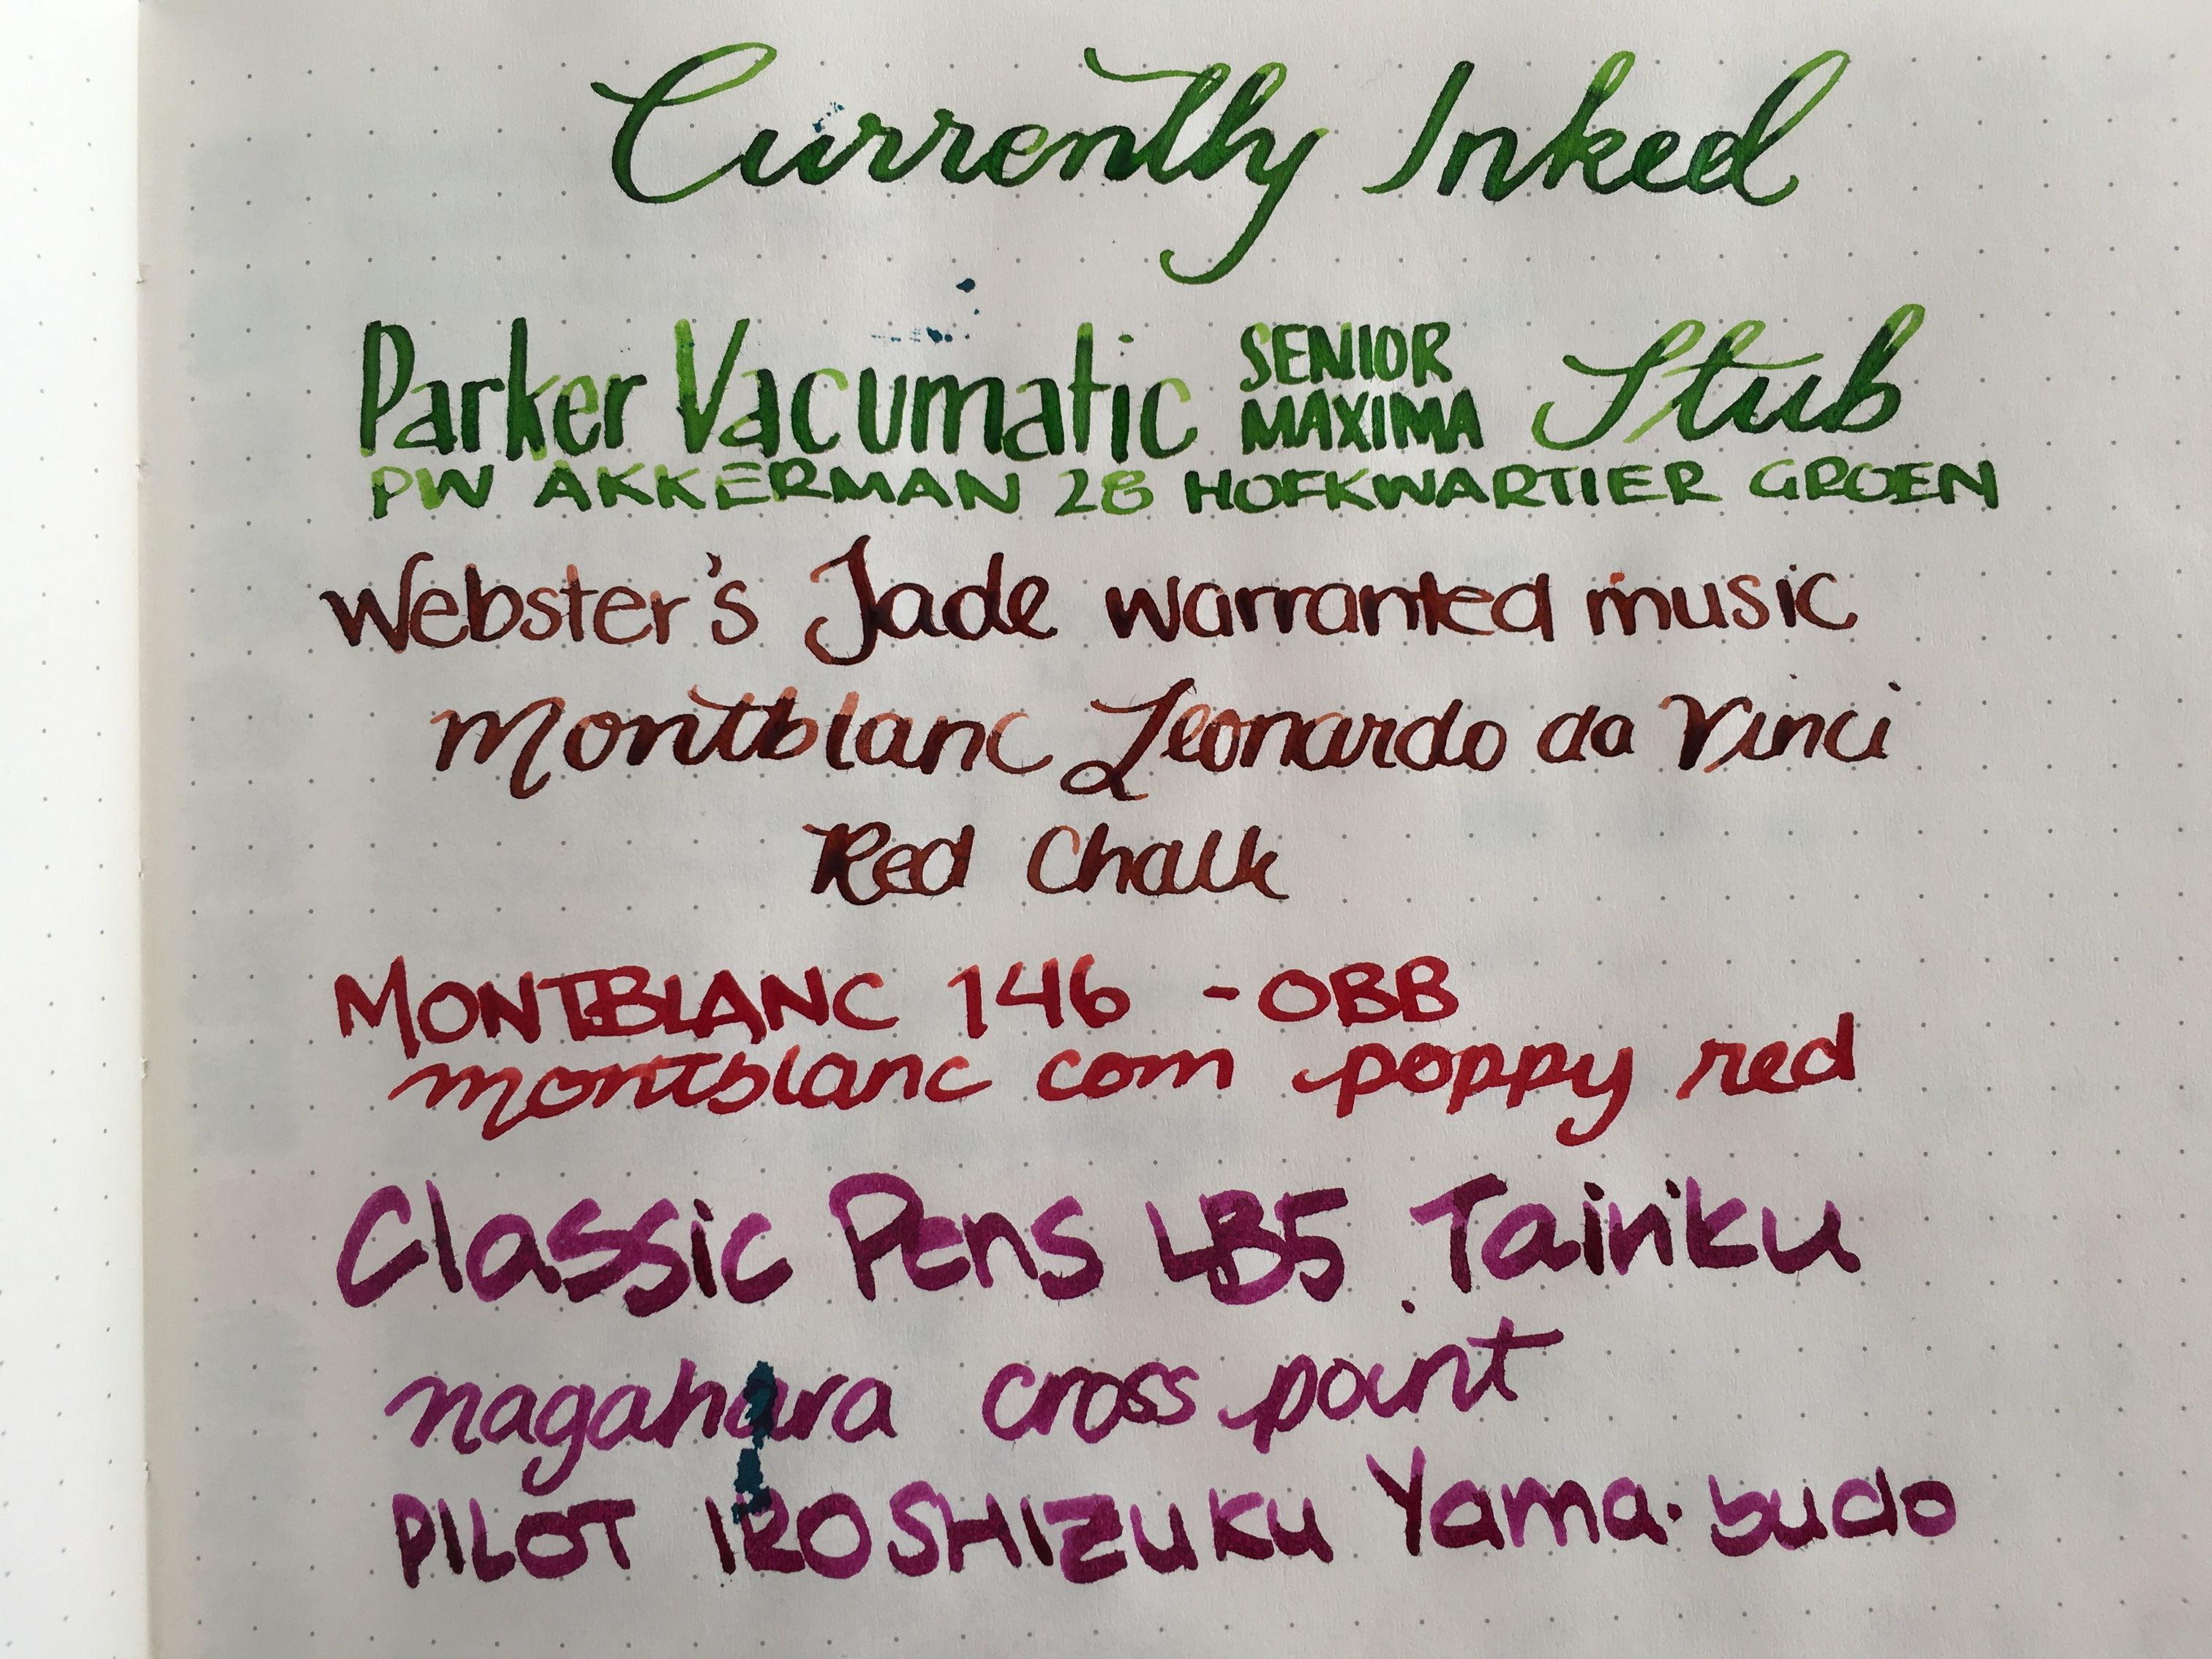 Currently Inked
Parker Vacumatic SENIOR MAXIMA Stub
PW AKKERMAN 28 HOFKWARTIER GROEN
Webster's Jade warranted music
Montblanc Leonardo da Vinci
Red Chalk
MONTBLANC 146 - OBB
montblanc com poppy red
Classic Pens LB5 Tairiku
nagahara cross point
PILOT IROSHIZUKU Yama-budo